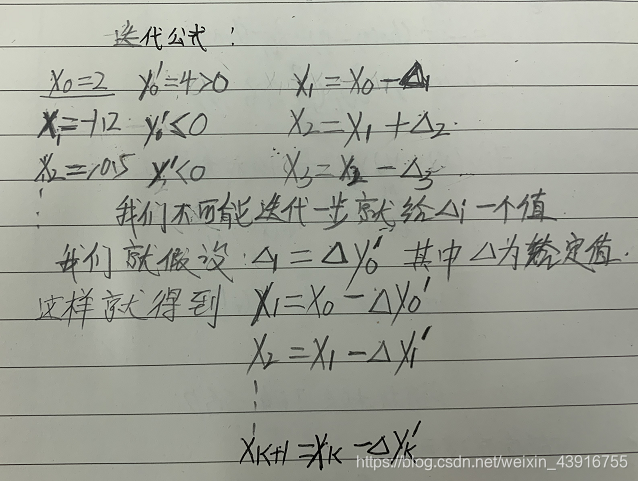 迭代公式：
x₀=2 y₀'=4>0 x₁=x₀-Δ₁
x₁=-1.2 y₀'≤0 x₂=x₁+Δ₂
x₂= y'<0 x₃=x₂-Δ₃
我们不可能迭代一步就给Δi一个值
我们就假设:Δ₁=Δy₀' 其中Δ为给定值.
这样就得到 x₁=x₀-Δy₀'
x₂=x₁-Δy₁'
xK+1=xK-ΔyK'
https://blog.csdn.net/weixin_43916755